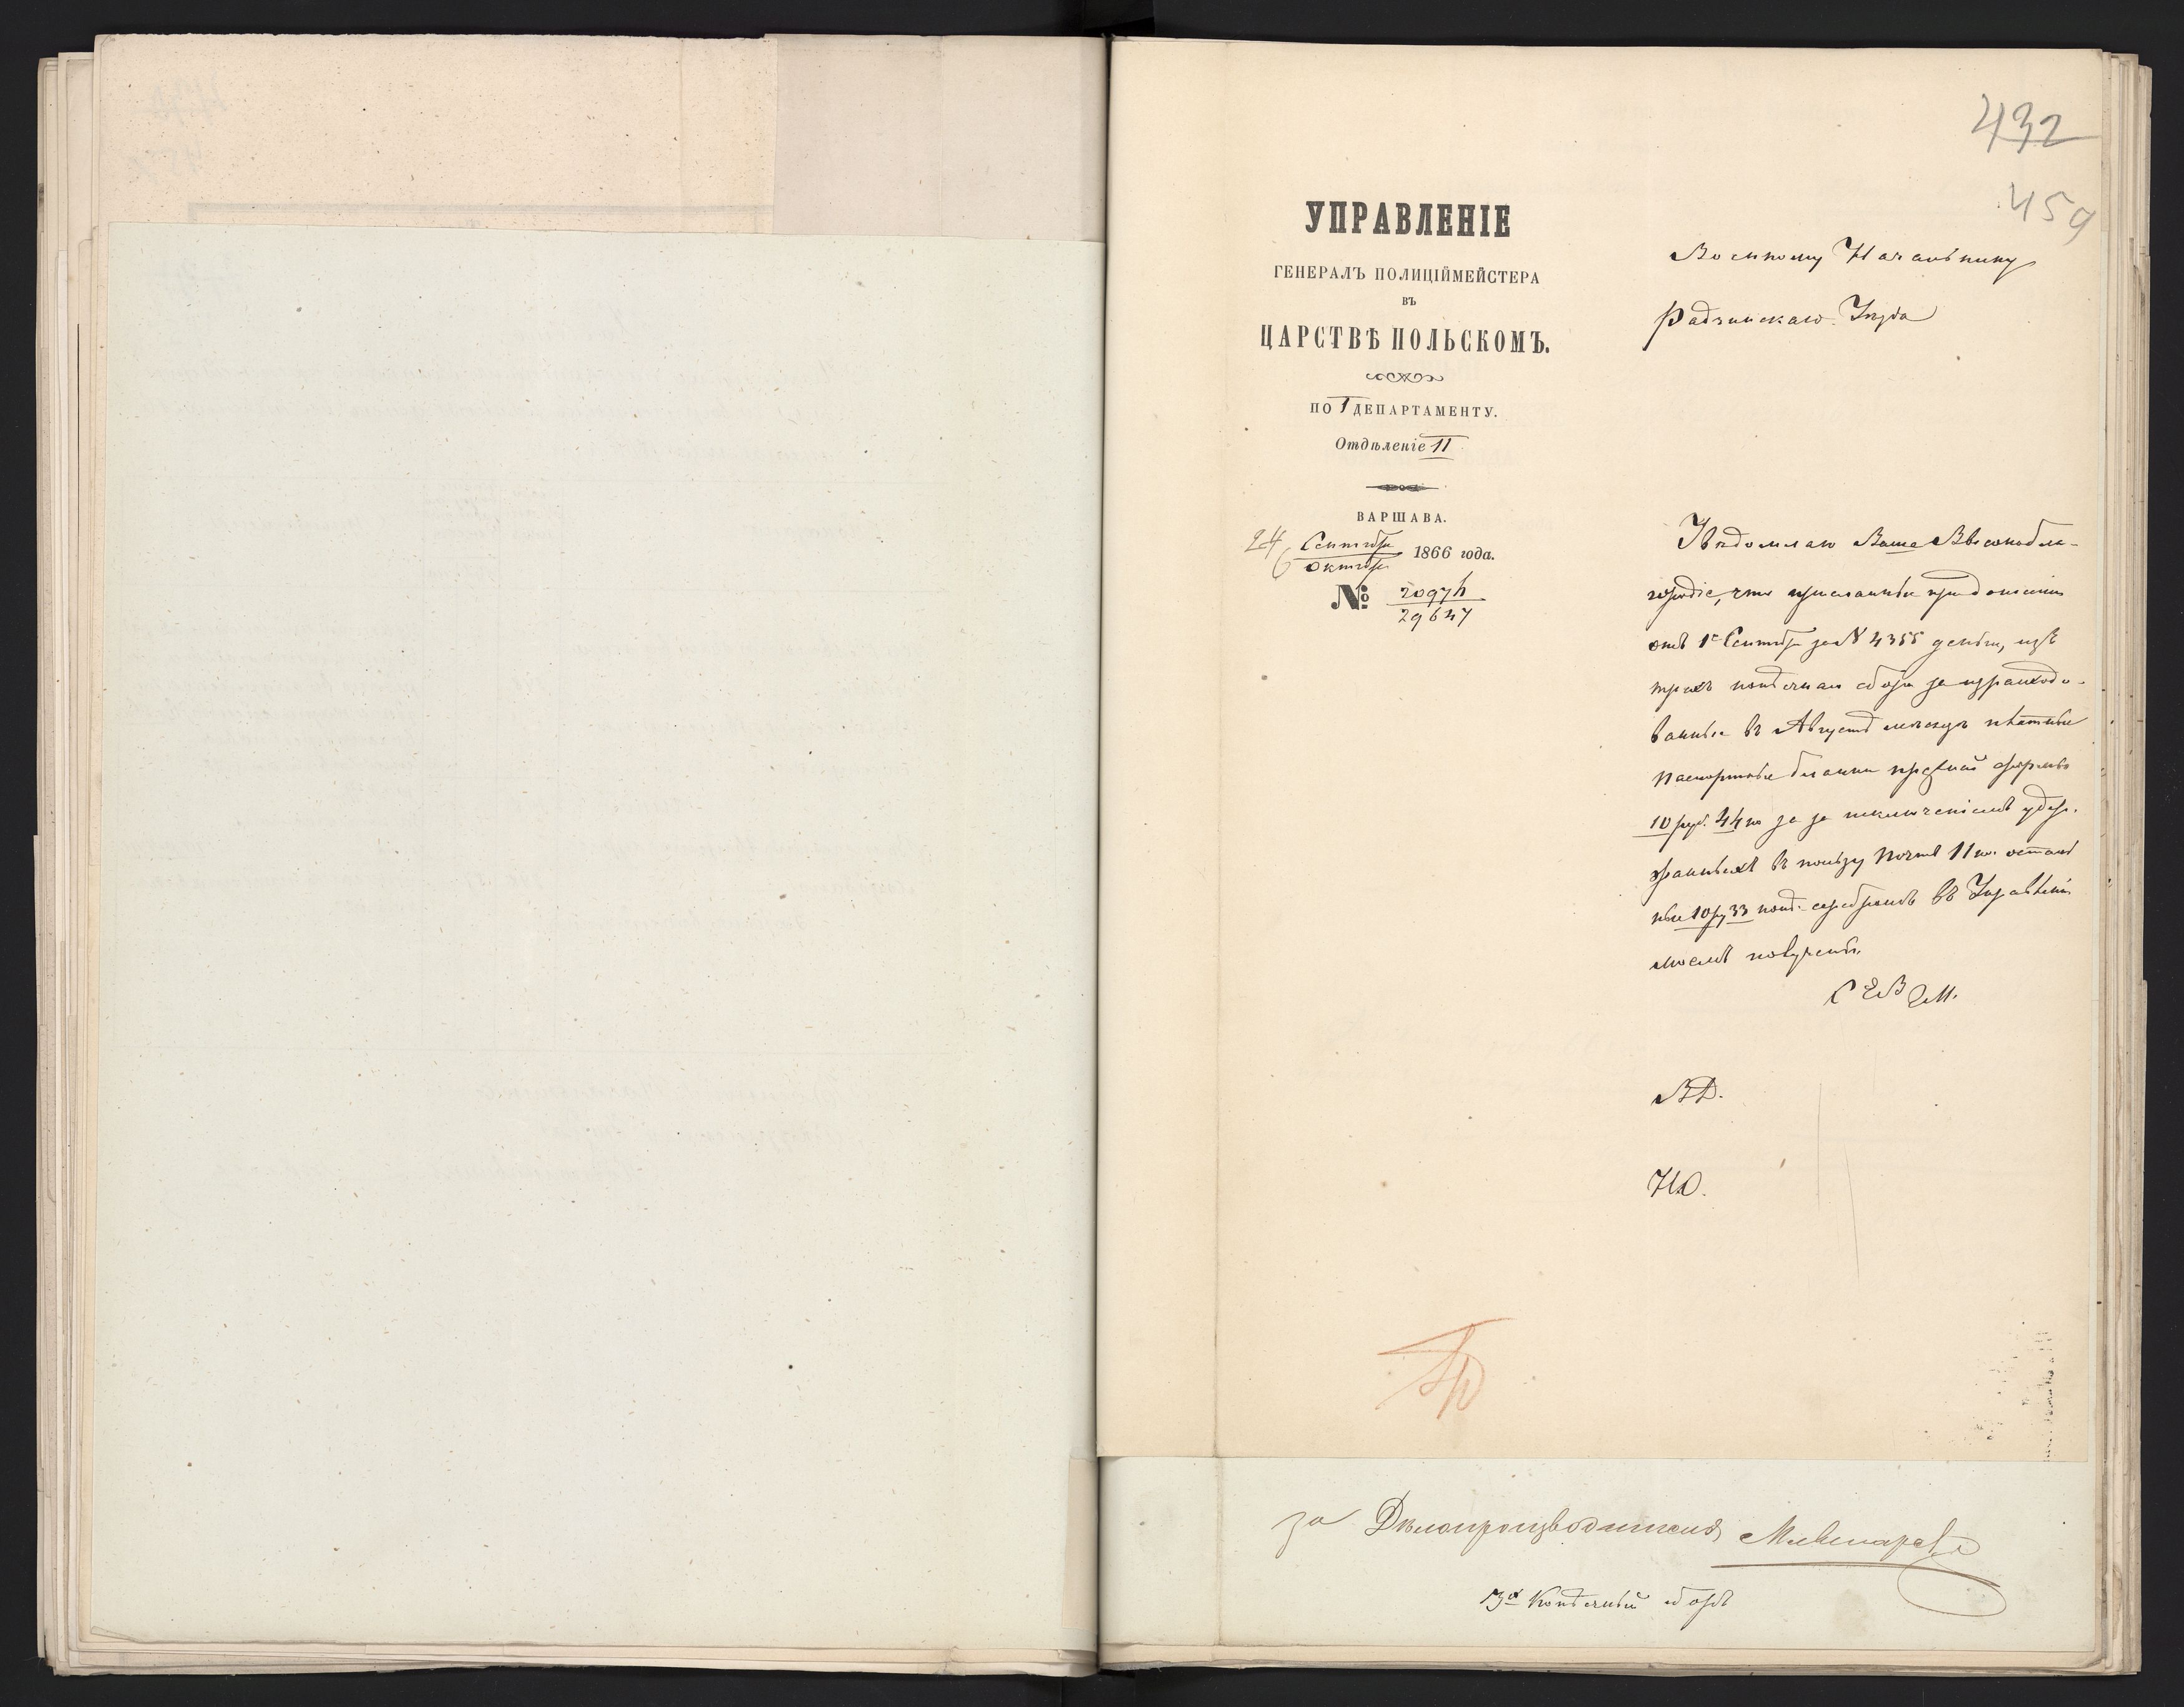 432
459
УПРАВЛЕНІЕ
ГЕНЕРАЛЪ ПОЛИЦІЙМЕЙСТЕРА
ВЪ
ЦАРСТВѢ ПОЛЬСКОМЪ.
ПО I ДЕПАРТАМЕНТУ.
Отдѣленіе II
ВАРШАВА.
24 Сентября
6 Октября 1866 года.
№ 20974
29647
Военному Начальнику
Радзинскаго Уѣзда
Увѣдомляю Ваше Высокобла-
городіе, что присланныя при донесеніи
отъ 1го Сентября за № 4355 деньги, изъ
трехъ копѣечнаго сбора за израсходо-
ванные въ Августѣ мѣсяцѣ
паспортные бланки прежней формы
10 руб. 44 к. за исключеніемъ удер-
жанныхъ въ пользу Почтъ 11 к. осталь
ные 10 р. 33 коп. серебромъ въ Управленіи
моемъ получены.
ВД.
НО.
За Дѣлопроизводителя
3х Копѣечный сборъ